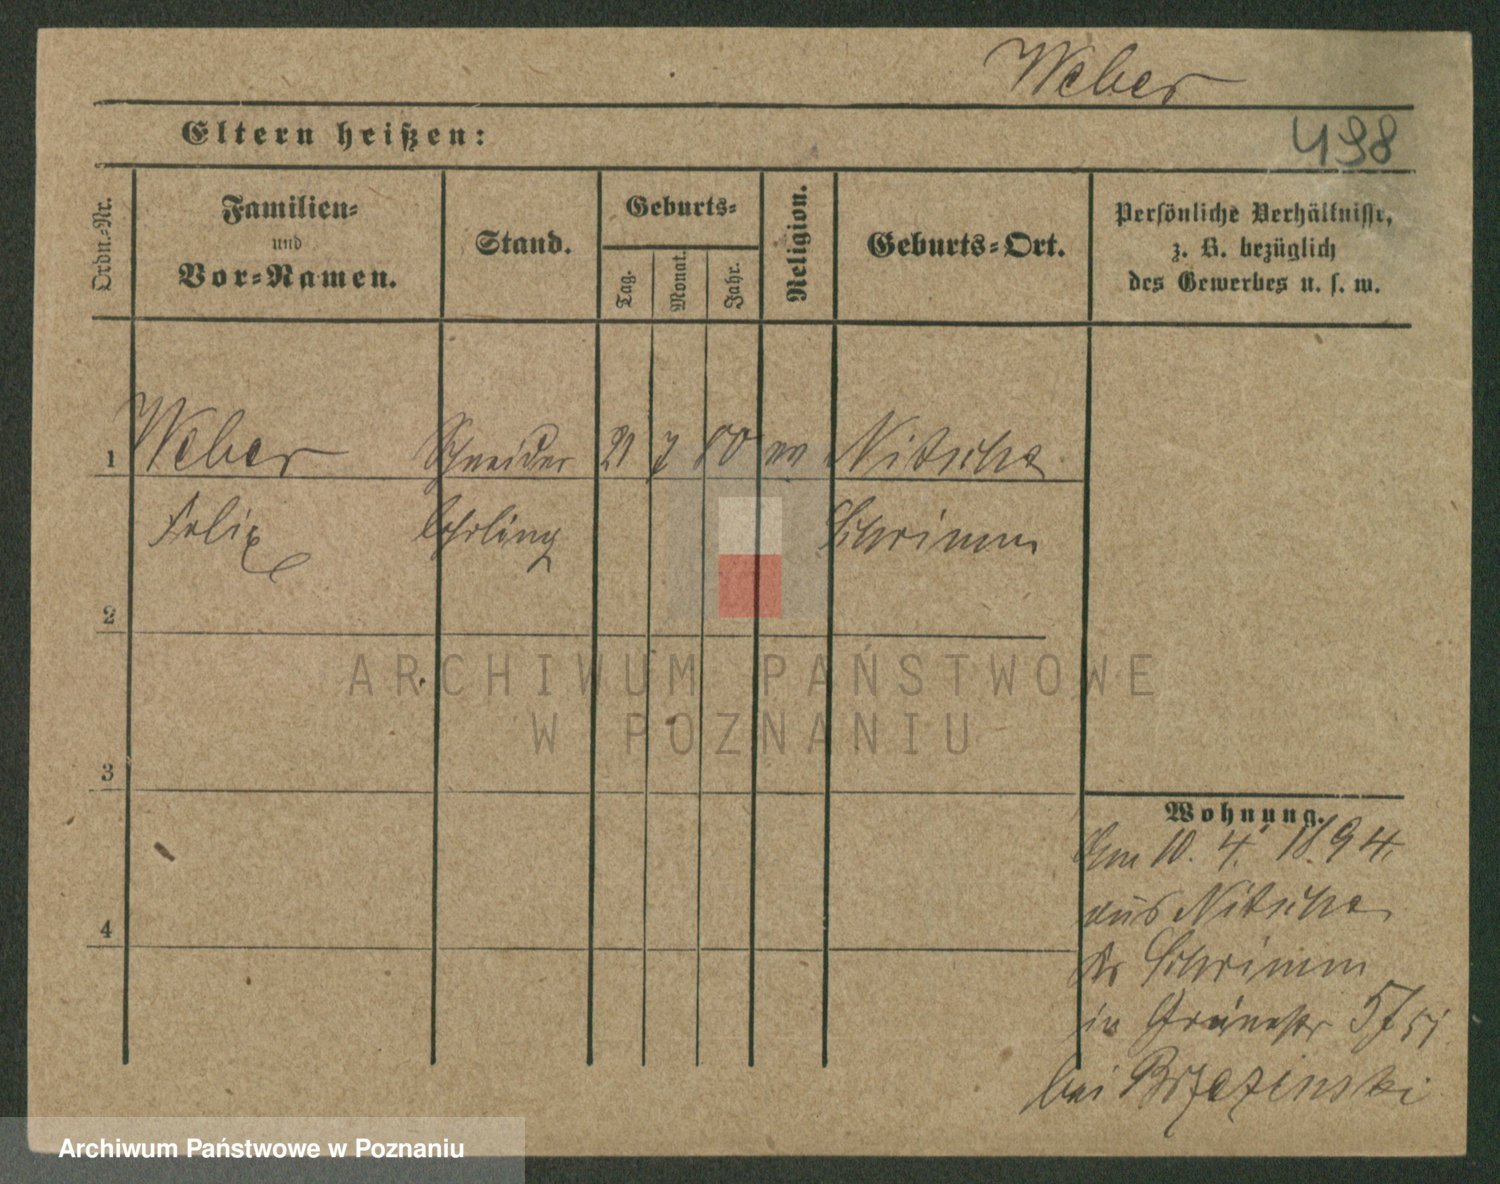 Weber
Eltern heißen:
498
Ordn.-Nr.
Familien-
und
Vor-Namen.
Stand.
Geburts-
Tag.
Monat.
Jahr.
Religion.
Geburts-Ort.
Persönliche Verhältnisse,
z. B. bezüglich
des Gewerbes u. s. w.
1 Weber Schneider 21 7 80 Nitsche
Felix Lehrling Schrimm
2
ARCHIWUM PAŃSTWOWE
W POZNANIU
3
Wohnung.
Am 10. 4. 1894.
aus Nitsche
4
Kr Schrimm
in Grünestr 5
bei Brzezinski
Archiwum Państwowe w Poznaniu